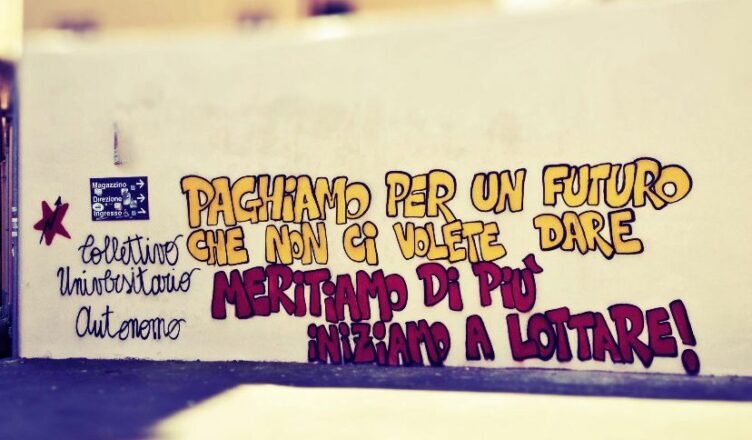 Magazzino
Direzione
Ingresso
PAGHIAMO PER UN FUTURO
CHE NON CI VOLETE DARE
MERITIAMO DI PIÙ
INIZIAMO A LOTTARE!
Collettivo
Universitario
Autonomo